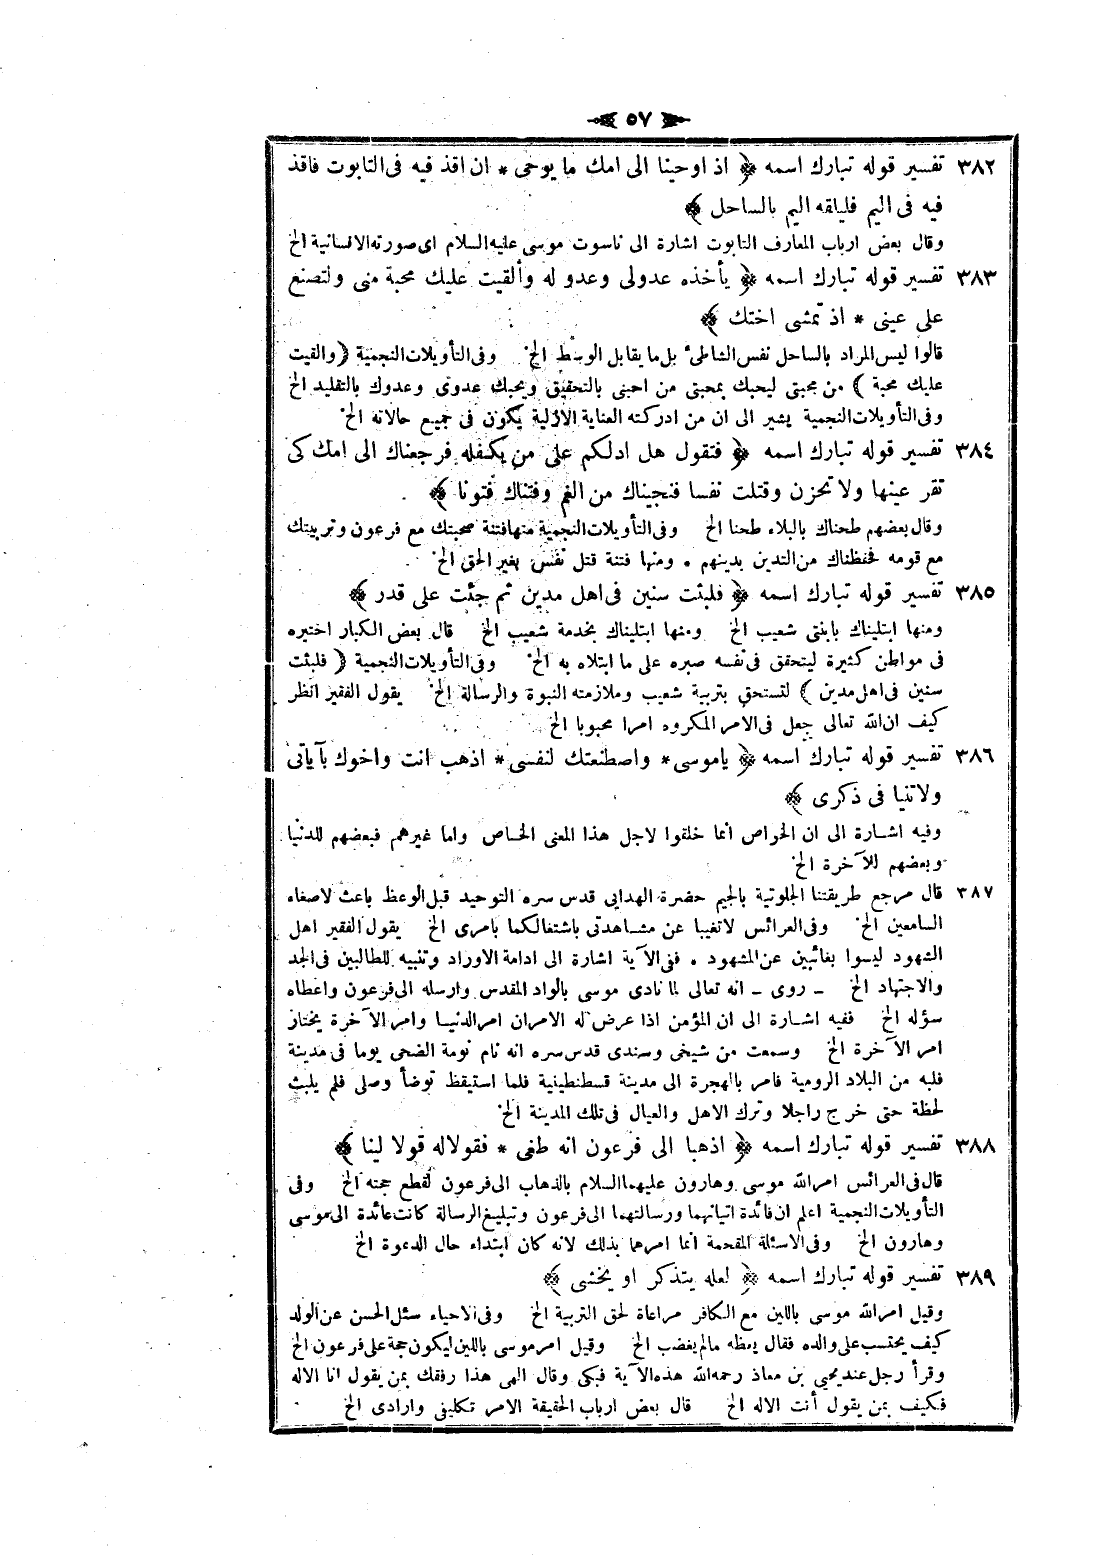 ٥٧
٣٨٢ تفسير قوله تبارك اسمه ﴿ اذ اوحينا الى امك ما يوحى * ان اقذ فيه فى التابوت فاقذ
فيه فى اليم فليلقه اليم بالساحل ﴾
وقال بعض ارباب المعارف التابوت اشارة الى ناسوت موسى عليه السلام اى صورته الانسانية الخ
٣٨٣ تفسير قوله تبارك اسمه ﴿ يأخذه عدولى وعدو له وألقيت عليك محبة منى ولتصنع
على عينى * اذ تمشى اختك ﴾
قالوا ليس المراد بالساحل نفس الشاطئ بل ما يقابل الوسط الخ وفى التأويلات النجمية ( والقيت
عليك محبة ) من محبتى ليحبك بمحبتى من احبنى بالتحقيق ويحبك عدوى وعدوك بالتقليد الخ
وفى التأويلات النجمية يشير الى ان من ادركته العناية الازلية يكون فى جميع حالاته الخ
٣٨٤ تفسير قوله تبارك اسمه ﴿ فتقول هل ادلكم على من يكفله فرجعناك الى امك كى
تقر عينها ولا تحزن وقتلت نفسا فنجيناك من الغم وفتناك فتونا ﴾
وقال بعضهم طحناك بالبلاء طحنا الخ وفى التأويلات النجمية منها فتنة صحبتك مع فرعون وتربيتك
مع قومه فحفظناك من التدين بدينهم . ومنها فتنة قتل نفس بغير الحق الخ
٣٨٥ تفسير قوله تبارك اسمه ﴿ فلبثت سنين فى اهل مدين ثم جئت على قدر ﴾
ومنها ابتليناك بابنتى شعيب الخ ومنها ابتليناك بخدمة شعيب الخ قال بعض الكبار اختبره
فى مواطن كثيرة ليتحقق فى نفسه صبره على ما ابتلاه به الخ وفى التأويلات النجمية ( فلبثت
سنين فى اهل مدين ) لتستحق بتربية شعيب وملازمته النبوة والرسالة الخ يقول الفقير انظر
كيف ان الله تعالى جعل فى الامر المكروه امرا محبوبا الخ
٣٨٦ تفسير قوله تبارك اسمه ﴿ ياموسى * واصطنعتك لنفسى * اذهب انت واخوك بآياتى
ولا تنيا فى ذكرى ﴾
وفيه اشارة الى ان الخواص انما خلقوا لاجل هذا المعنى الخاص واما غيرهم فبعضهم للدنيا
وبعضهم للآخرة الخ
٣٨٧ قال مرجع طريقتنا الجلوتية بالجيم حضرة الهدايى قدس سره التوحيد قبل الوعظ باعث لاصغاء
السامعين الخ وفى العرائس لا تغيبا عن مشاهدتى باشتغالكما بامرى الخ يقول الفقير اهل
الشهود ليسوا بغائبين عن المشهود . ففى الآية اشارة الى ادامة الاوراد وتنبيه للطالبين فى الجد
والاجتهاد الخ – روى – انه تعالى لما نادى موسى بالواد المقدس وارسله الى فرعون واعطاه
سؤله الخ ففيه اشارة الى ان المؤمن اذا عرض له الامران امر الدنيا وامر الآخرة يختار
امر الآخرة الخ وسمعت من شيخى وسندى قدس سره انه نام نومة الضحى يوما فى مدينة
فلبه من البلاد الرومية فامر بالهجرة الى مدينة قسطنطينية فلما استيقظ توضأ وصلى فلم يلبث
لحظة حتى خرج راجلا وترك الاهل والعيال فى تلك المدينة الخ
٣٨٨ تفسير قوله تبارك اسمه ﴿ اذهبا الى فرعون انه طغى * فقولا له قولا لينا ﴾
قال فى العرائس امر الله موسى وهارون عليهما السلام بالذهاب الى فرعون لقطع حجته الخ وفى
التأويلات النجمية اعلم ان فائدة اتيانهما ورسالتهما الى فرعون وتبليغ الرسالة كانت عائدة الى موسى
وهارون الخ وفى الاسئلة المقحمة انما امرهما بذلك لانه كان ابتداء حال الدعوة الخ
٣٨٩ تفسير قوله تبارك اسمه ﴿ لعله يتذكر او يخشى ﴾
وقيل امر الله موسى باللين مع الكافر مراعاة لحق التربية الخ وفى الاحياء سئل الحسن عن الولد
كيف يحتسب على والده فقال يعظه مالم يغضب الخ وقيل امر موسى باللين ليكون حجة على فرعون الخ
وقرأ رجل عند يحيى بن معاذ رحمه الله هذه الآية فبكى وقال الهى هذا رفقك بمن يقول انا الاله
فكيف بمن يقول أنت الاله الخ قال بعض ارباب الحقيقة الامر تكليفى وارادى الخ